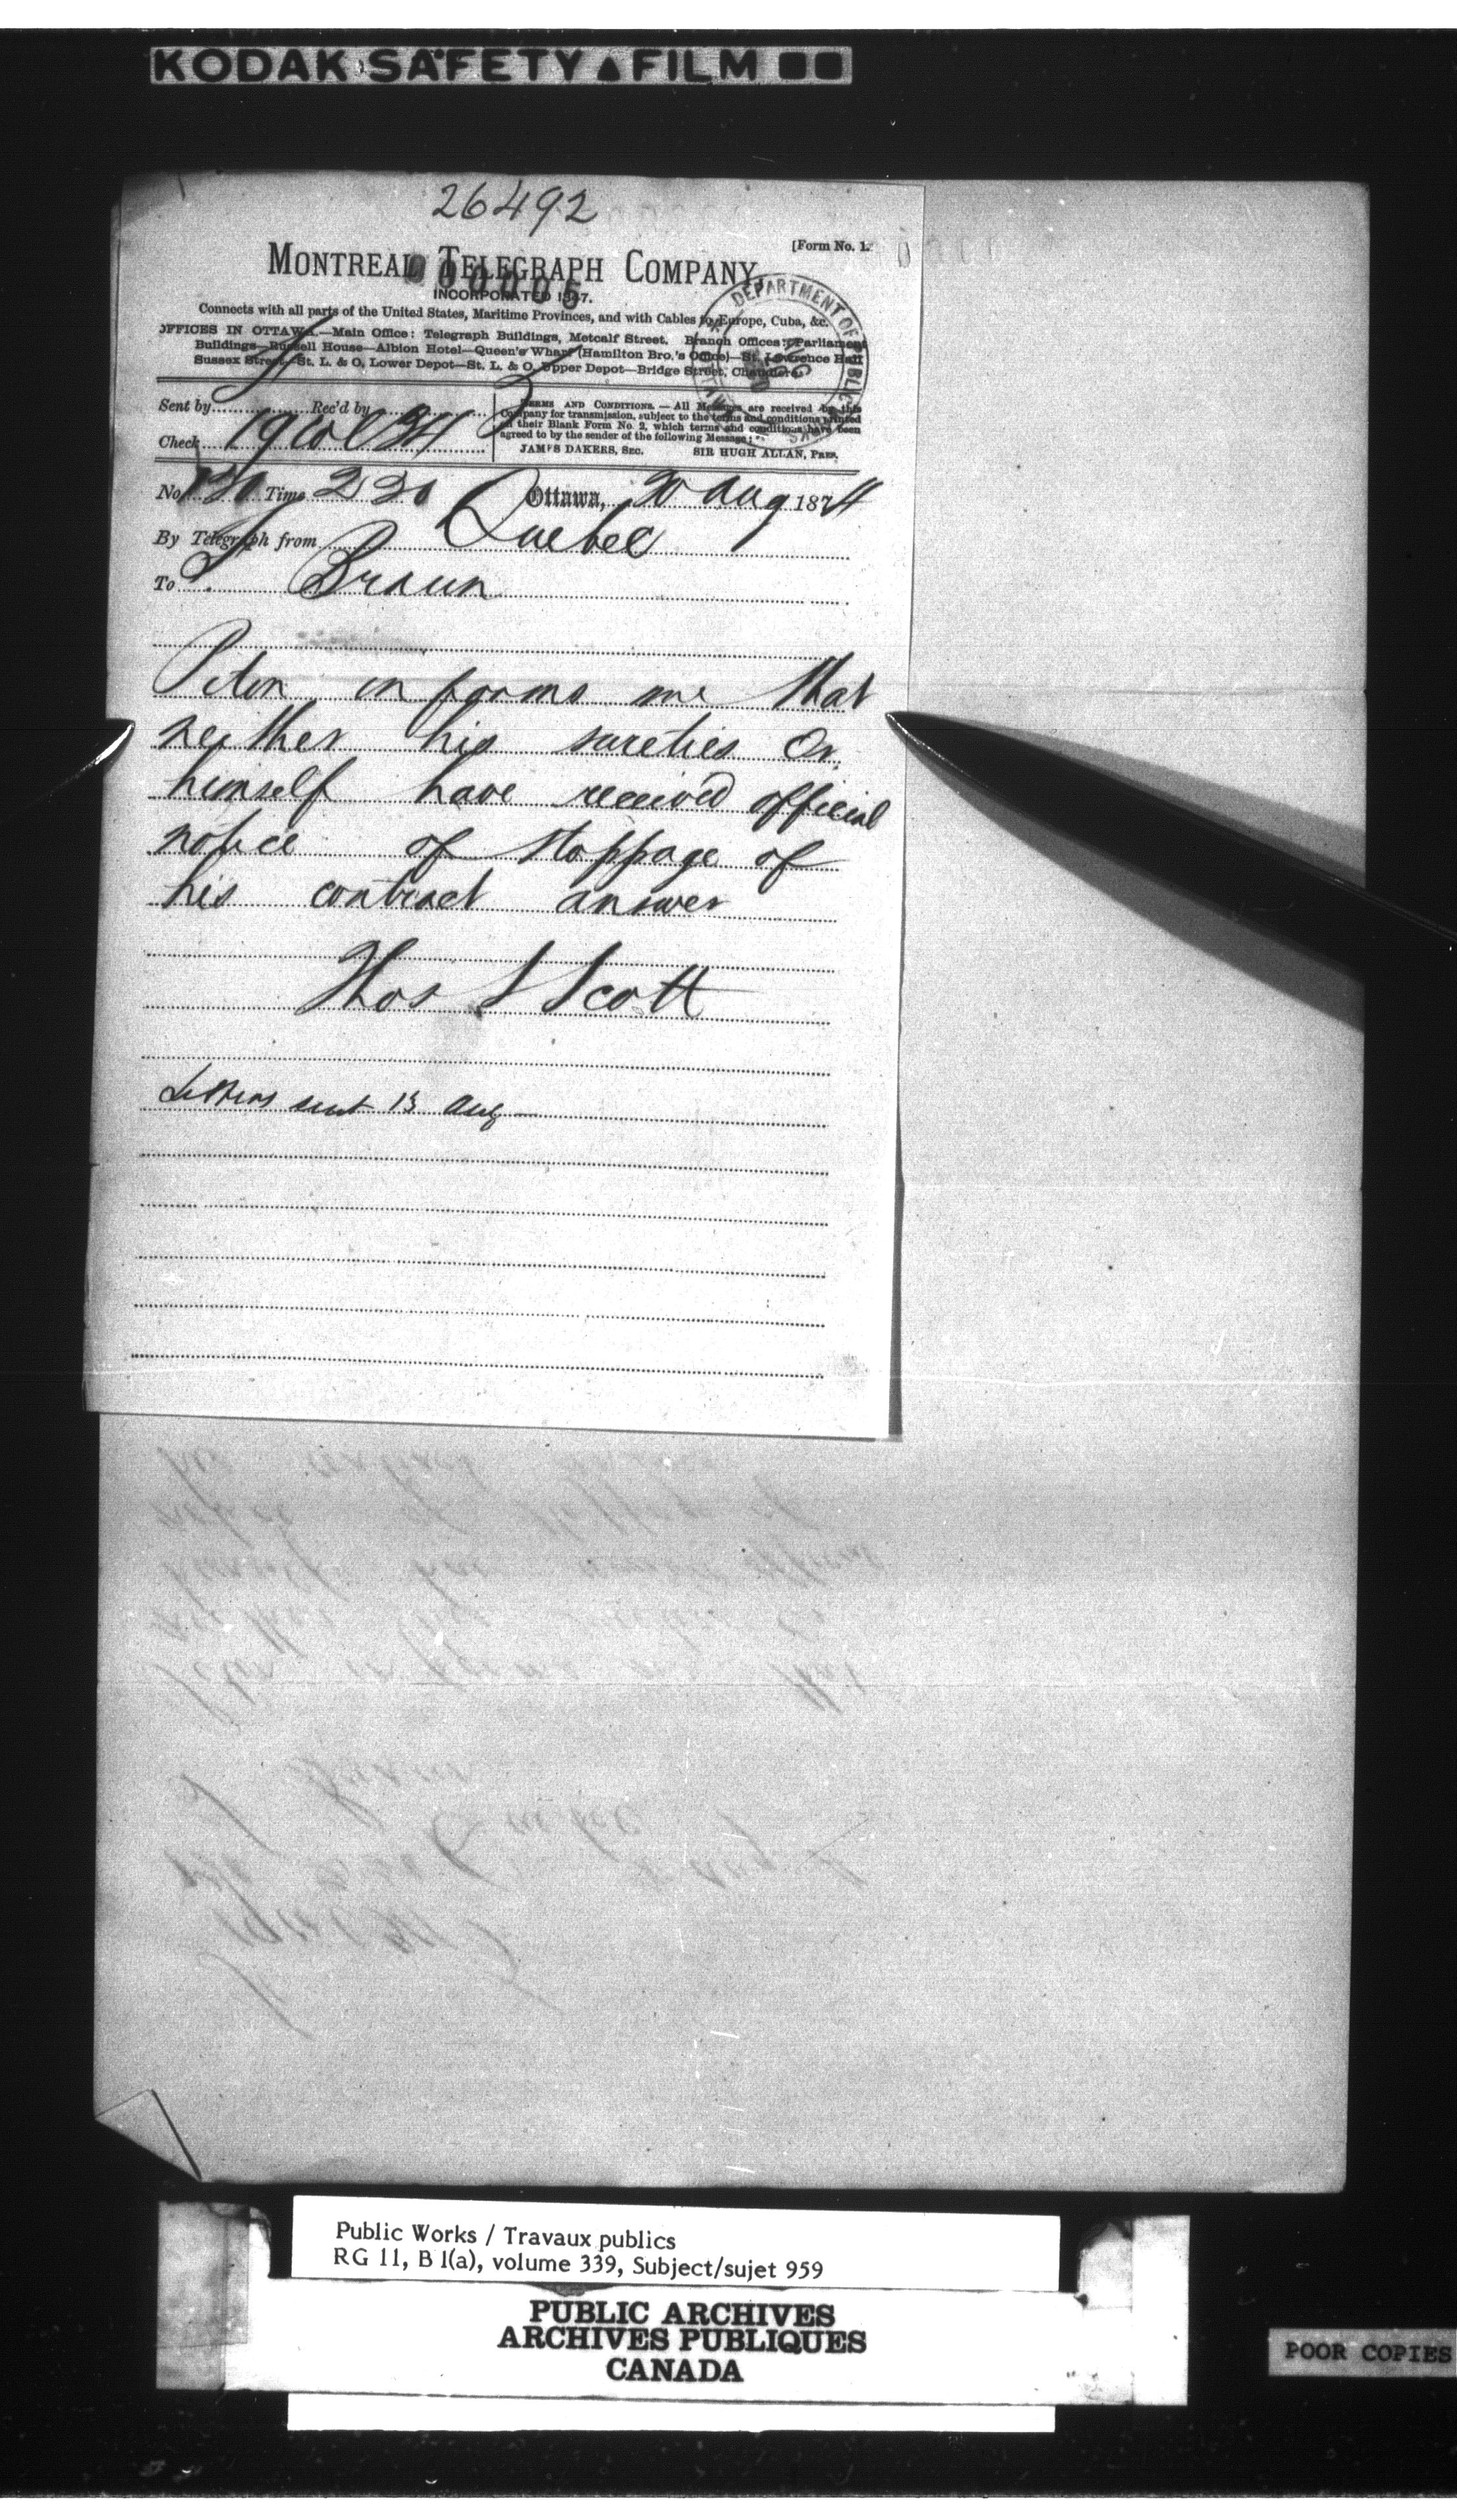 KODAK SAFETY FILM
26492
[Form No. 1.
MONTREAL TELEGRAPH COMPANY.
INCORPORATED 1847.
Connects with all parts of the United States, Maritime Provinces, and with Cables to Europe, Cuba, &c.
OFFICES IN OTTAWA.—Main Office: Telegraph Buildings, Metcalf Street. Branch Offices: Parliament
Buildings—Russell House—Albion Hotel—Queen's Wharf (Hamilton Bro.'s Office)—St. Lawrence Hall
Sussex Street—St. L. & O. Lower Depot—St. L. & O. Upper Depot—Bridge Street, Chaudiere.
DEPARTMENT OF PUBLIC
Sent by Rec'd by
Check
TERMS AND CONDITIONS.—All Messages are received by this
Company for transmission, subject to the terms and conditions printed
on their Blank Form No. 2, which terms and conditions have been
agreed to by the sender of the following Message:
JAMES DAKERS, SEC. SIR HUGH ALLAN, PRES.
No Time 2 20 Ottawa, 20 Aug 1874
By Telegraph from Quebec
To Braun
Piton informs me that
neither his sureties or
himself have received official
notice of stoppage of
his contract answer
Thos S Scott
Letters sent 13 Aug
Public Works / Travaux publics
RG 11, B 1(a), volume 339, Subject/sujet 959
PUBLIC ARCHIVES
ARCHIVES PUBLIQUES
CANADA
POOR COPIES